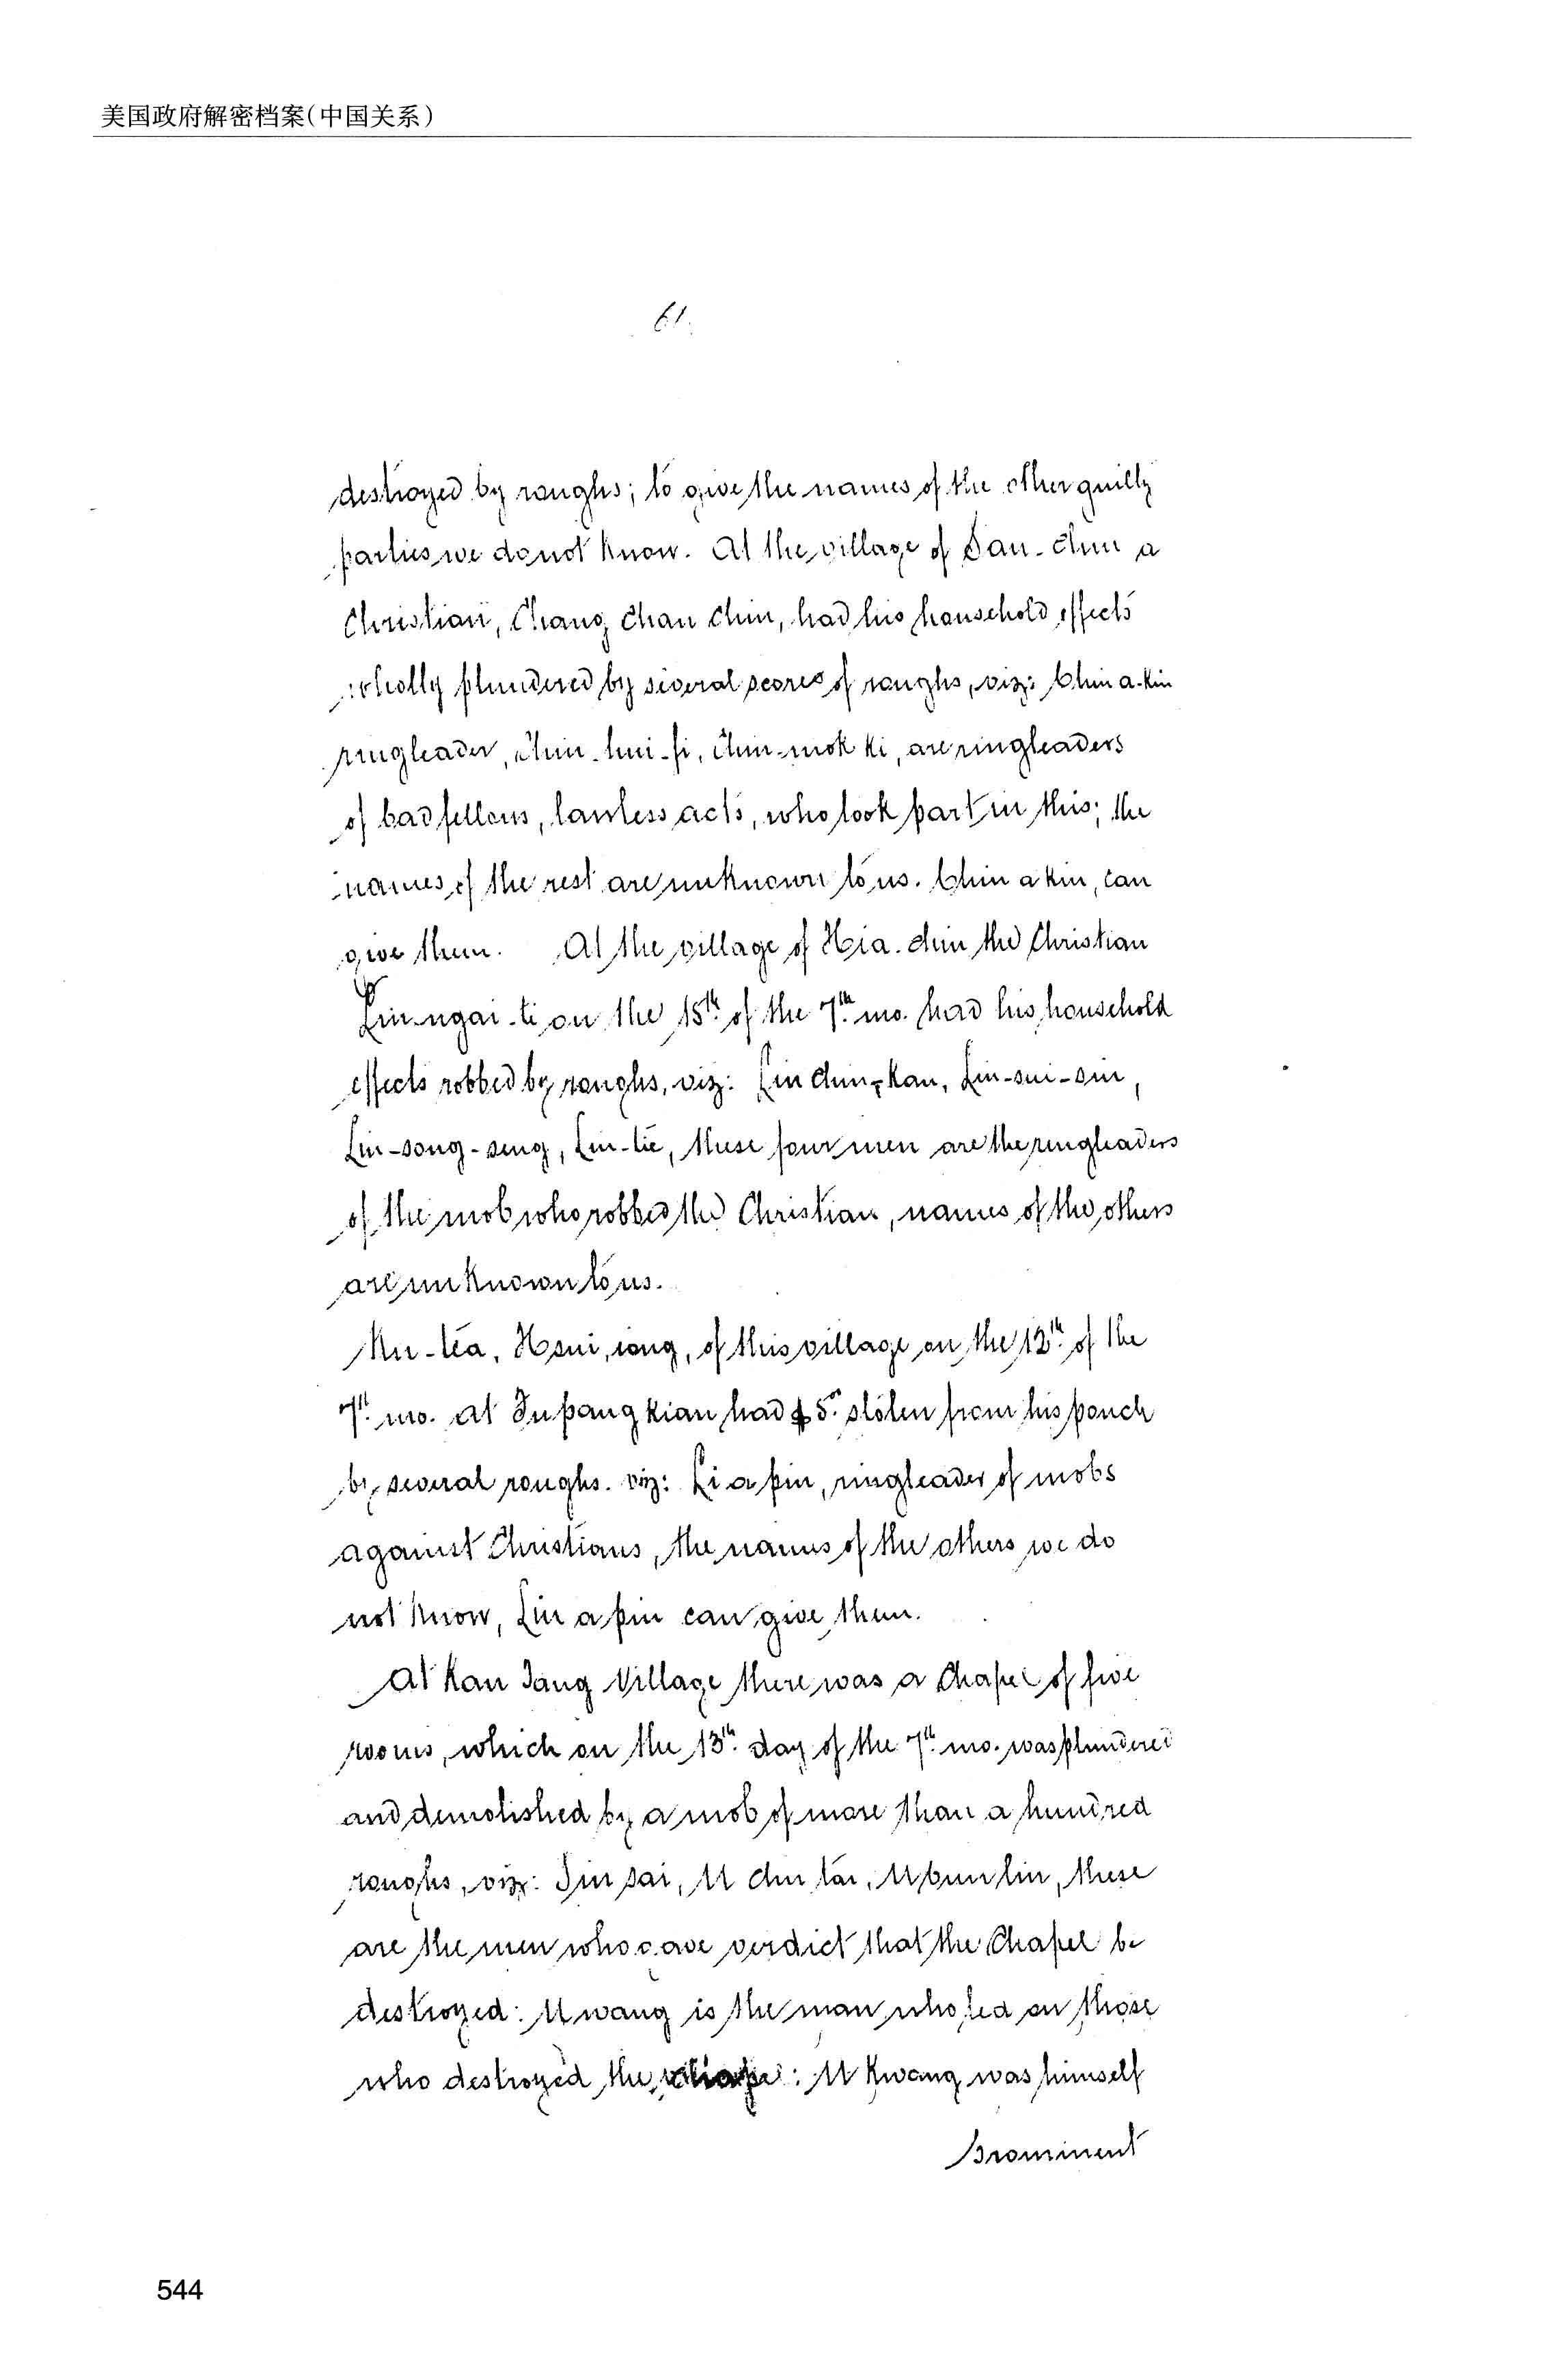 美国政府解密档案(中国关系)
61.
destroyed by roughs; to give the names of the other guilty
parties we do not know. At the village of San-chun a
Christian, Chang Chan Chin, had his household effects
wholly plundered by several scores of roughs, viz: Chin a-kin
ringleader, Chin-hui-fi, Chin-mok ki, are ringleaders
of bad fellows, lawless acts, who took part in this; the
names of the rest are unknown to us. Chin a kin, can
give them. At the village of Hia-chun the Christian
Lin-ngai-ti on the 15th of the 7th mo. had his household
effects robbed by roughs, viz: Lin chun-kan, Lin-sui-sin,
Lin-song-seng, Lin-tie, these four men are the ringleaders
of the mob who robbed the Christian, names of the others
are unknown to us.
Ku-tea, Hsui, iong, of this village on the 13th of the
7th mo. at Tupang kian had $5. stolen from his pouch
by several roughs. viz: Li a pin, ringleader of mobs
against Christians, the names of the others we do
not know, Lin a pin can give them.
At Kan Tang Village there was a Chapel of five
rooms, which on the 13th day of the 7th mo. was plundered
and demolished by a mob of more than a hundred
roughs, viz: Tin sai, U chu tai, U bun lin, these
are the men who gave verdict that the Chapel be
destroyed: U wang is the man who led on those
who destroyed the chapel: U Kwang was himself
prominent
544